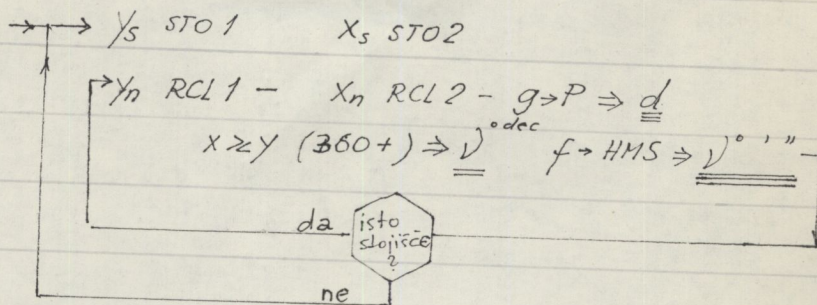 Ys STO 1 Xs STO 2
Yn RCL 1 — Xn RCL 2 - g→P ⇒ d
x≷y (360+) ⇒ ν °dec f→HMS ⇒ ν ° ' "
da isto
stojišče
?
ne